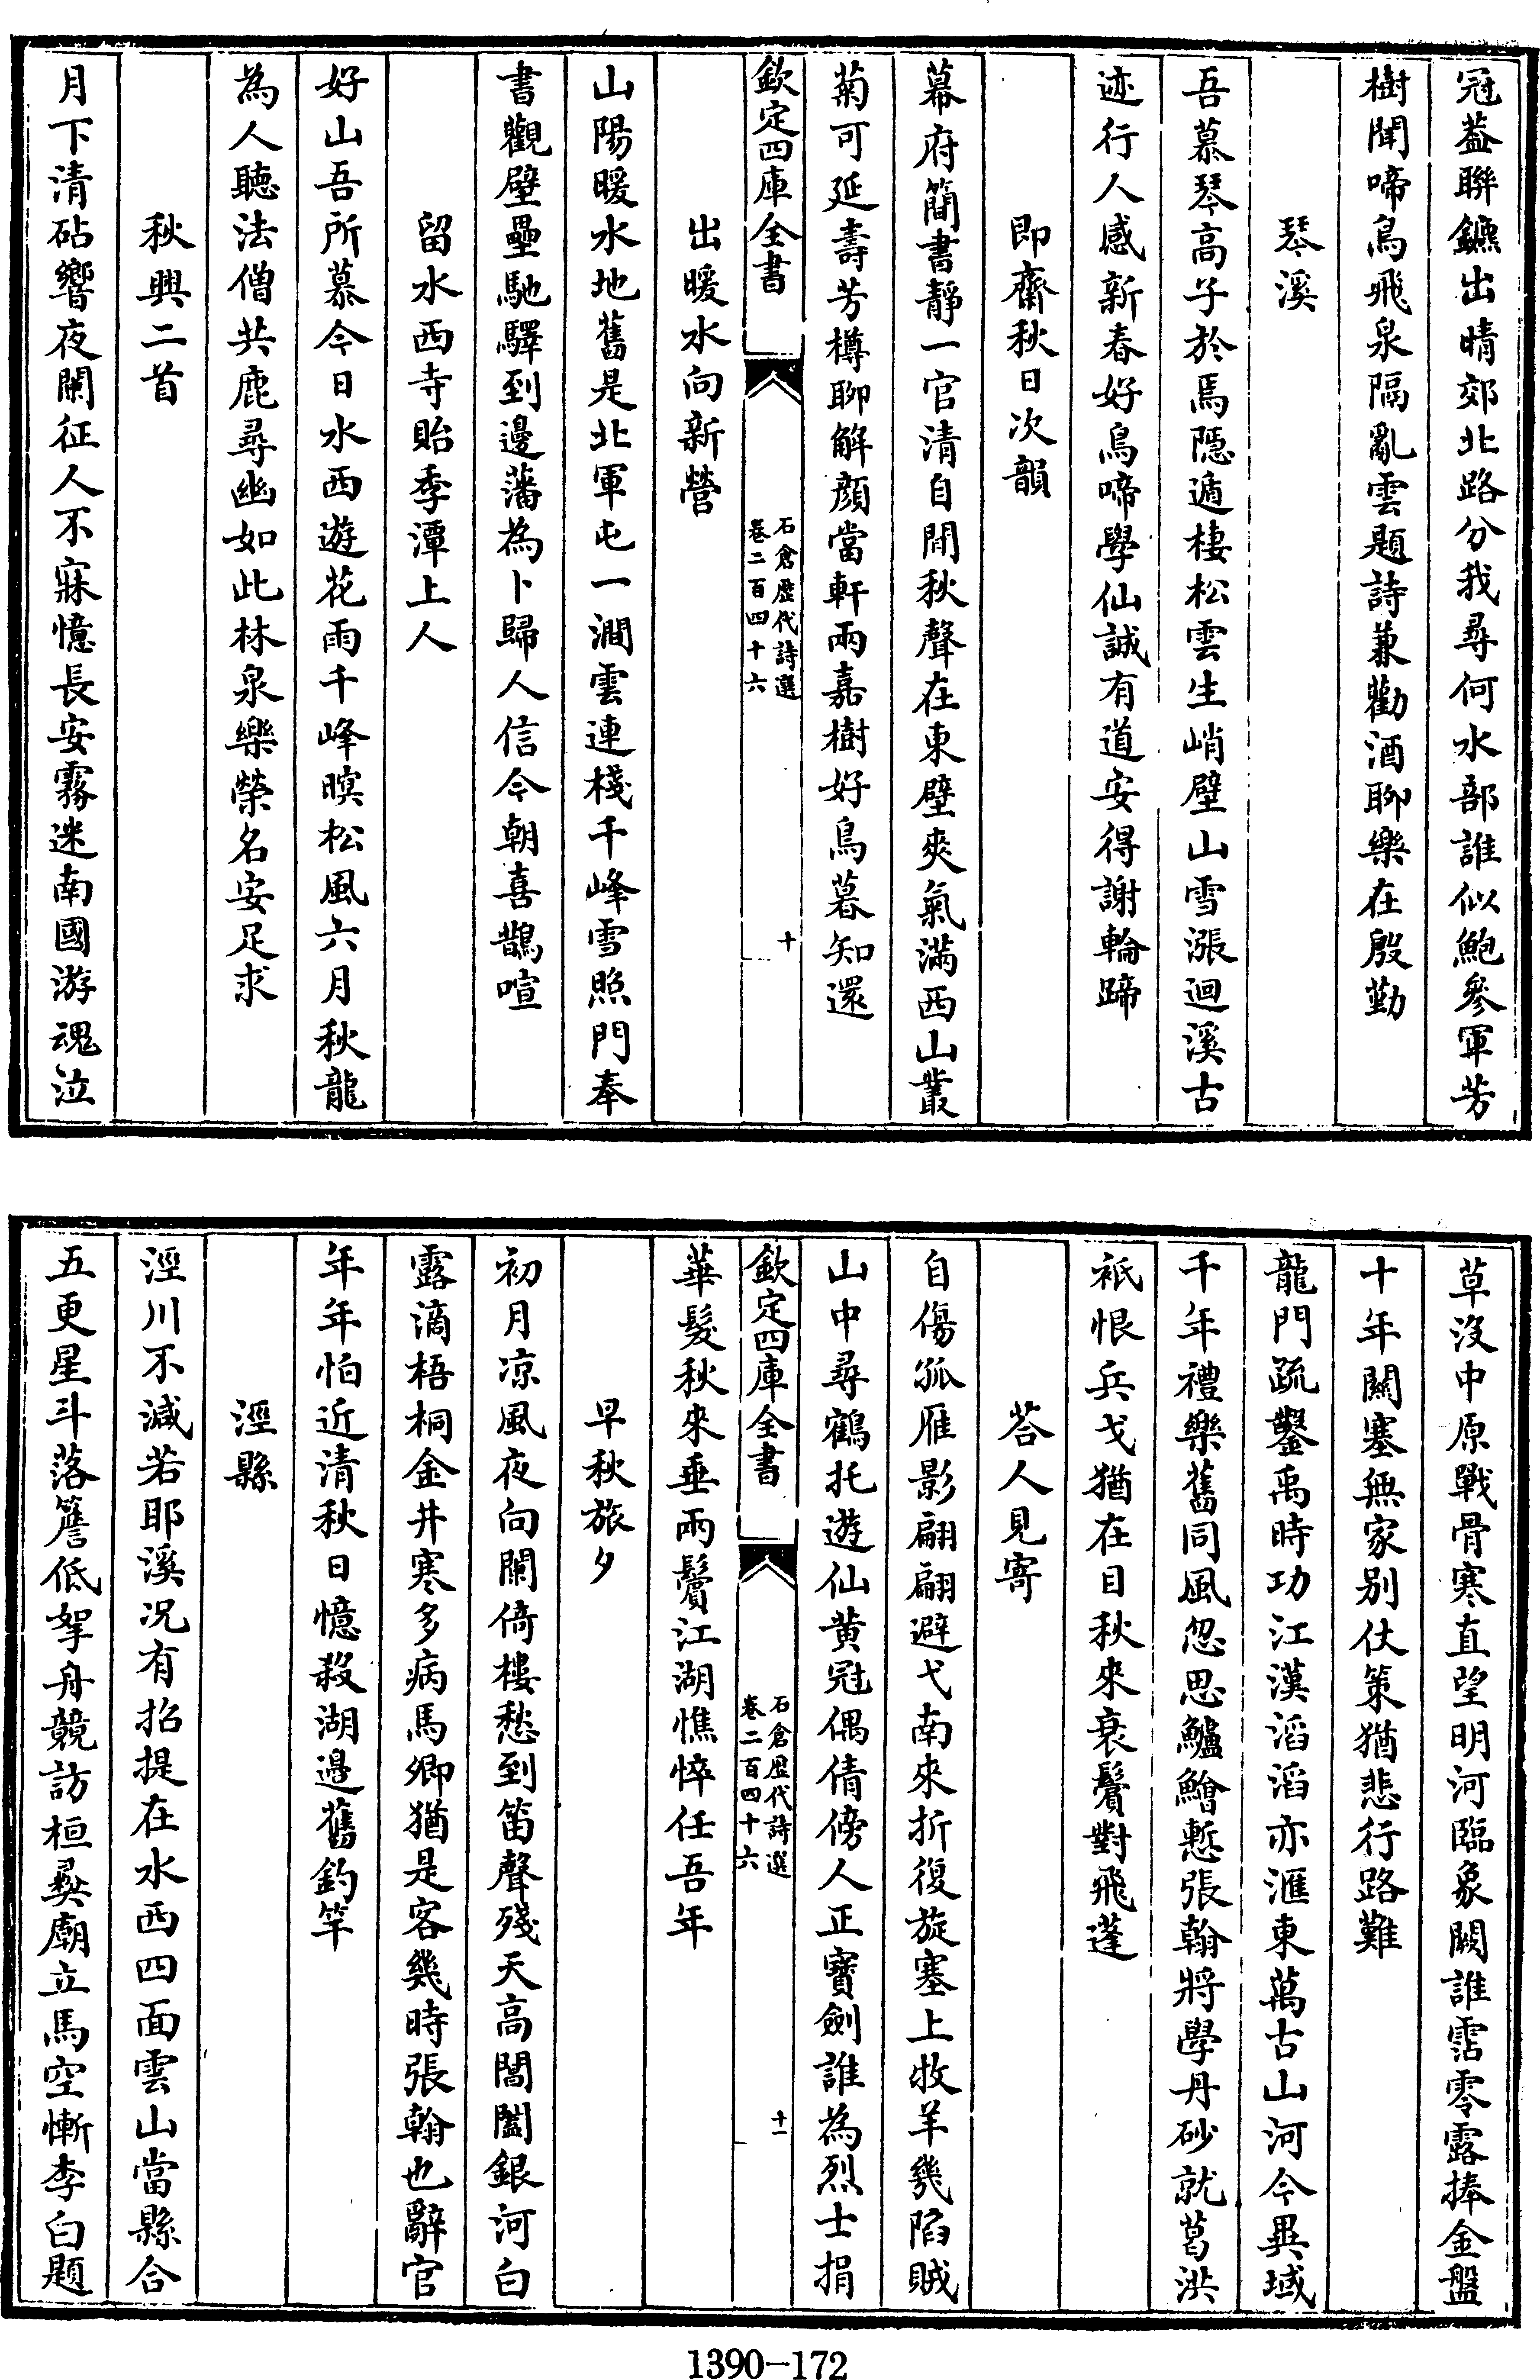 冠蓋聯鑣出晴郊北路分我尋何水部誰似鮑參軍芳
樹聞啼鳥飛泉隔亂雲題詩兼勸酒聊樂在殷勤
琴溪
吾慕琴高子於焉隱遁棲松雲生峭壁山雪漲迴溪古
迹行人感新春好鳥啼學仙誠有道安得謝輪蹄
即齋秋日次韻
幕府簡書靜一官清自閒秋聲在東壁爽氣滿西山叢
菊可延壽芳樽聊解顔當軒兩嘉樹好鳥暮知還
欽定四庫全書
石倉歷代詩選
卷二百四十六
十
出暖水向新營
山陽暖水地舊是北軍屯一澗雲連棧千峰雪照門奉
書觀壁壘馳驛到邊藩為卜歸人信今朝喜鵲喧
留水西寺貽季潭上人
好山吾所慕今日水西遊花雨千峰暝松風六月秋龍
為人聽法僧共鹿尋幽如此林泉樂榮名安足求
秋興二首
月下清砧響夜闌征人不寐憶長安霧迷南國游魂泣
草沒中原戰骨寒直望明河臨象闕誰霑零露捧金盤
十年關塞無家别仗策猶悲行路難
龍門疏鑿禹時功江漢滔滔亦滙東萬古山河今異域
千年禮樂舊同風忽思鱸鱠慙張翰將學丹砂就葛洪
衹恨兵戈猶在目秋來衰鬢對飛蓬
荅人見寄
自傷孤雁影翩翩避弋南來折復旋塞上牧羊幾陷賊
山中尋鶴托遊仙黄冠偶倩傍人正寶劍誰為烈士捐
欽定四庫全書
石倉歷代詩選
卷二百四十六
十一
華髮秋來垂兩鬢江湖憔悴任吾年
早秋旅夕
初月凉風夜向闌倚樓愁到笛聲殘天高閶闔銀河白
露滴梧桐金井寒多病馬卿猶是客幾時張翰也辭官
年年怕近清秋日憶殺湖邉舊釣竿
涇縣
涇川不減若耶溪况有招提在水西四面雲山當縣合
五更星斗落簷低拏舟競訪桓彜廟立馬空慚李白題
1390-172